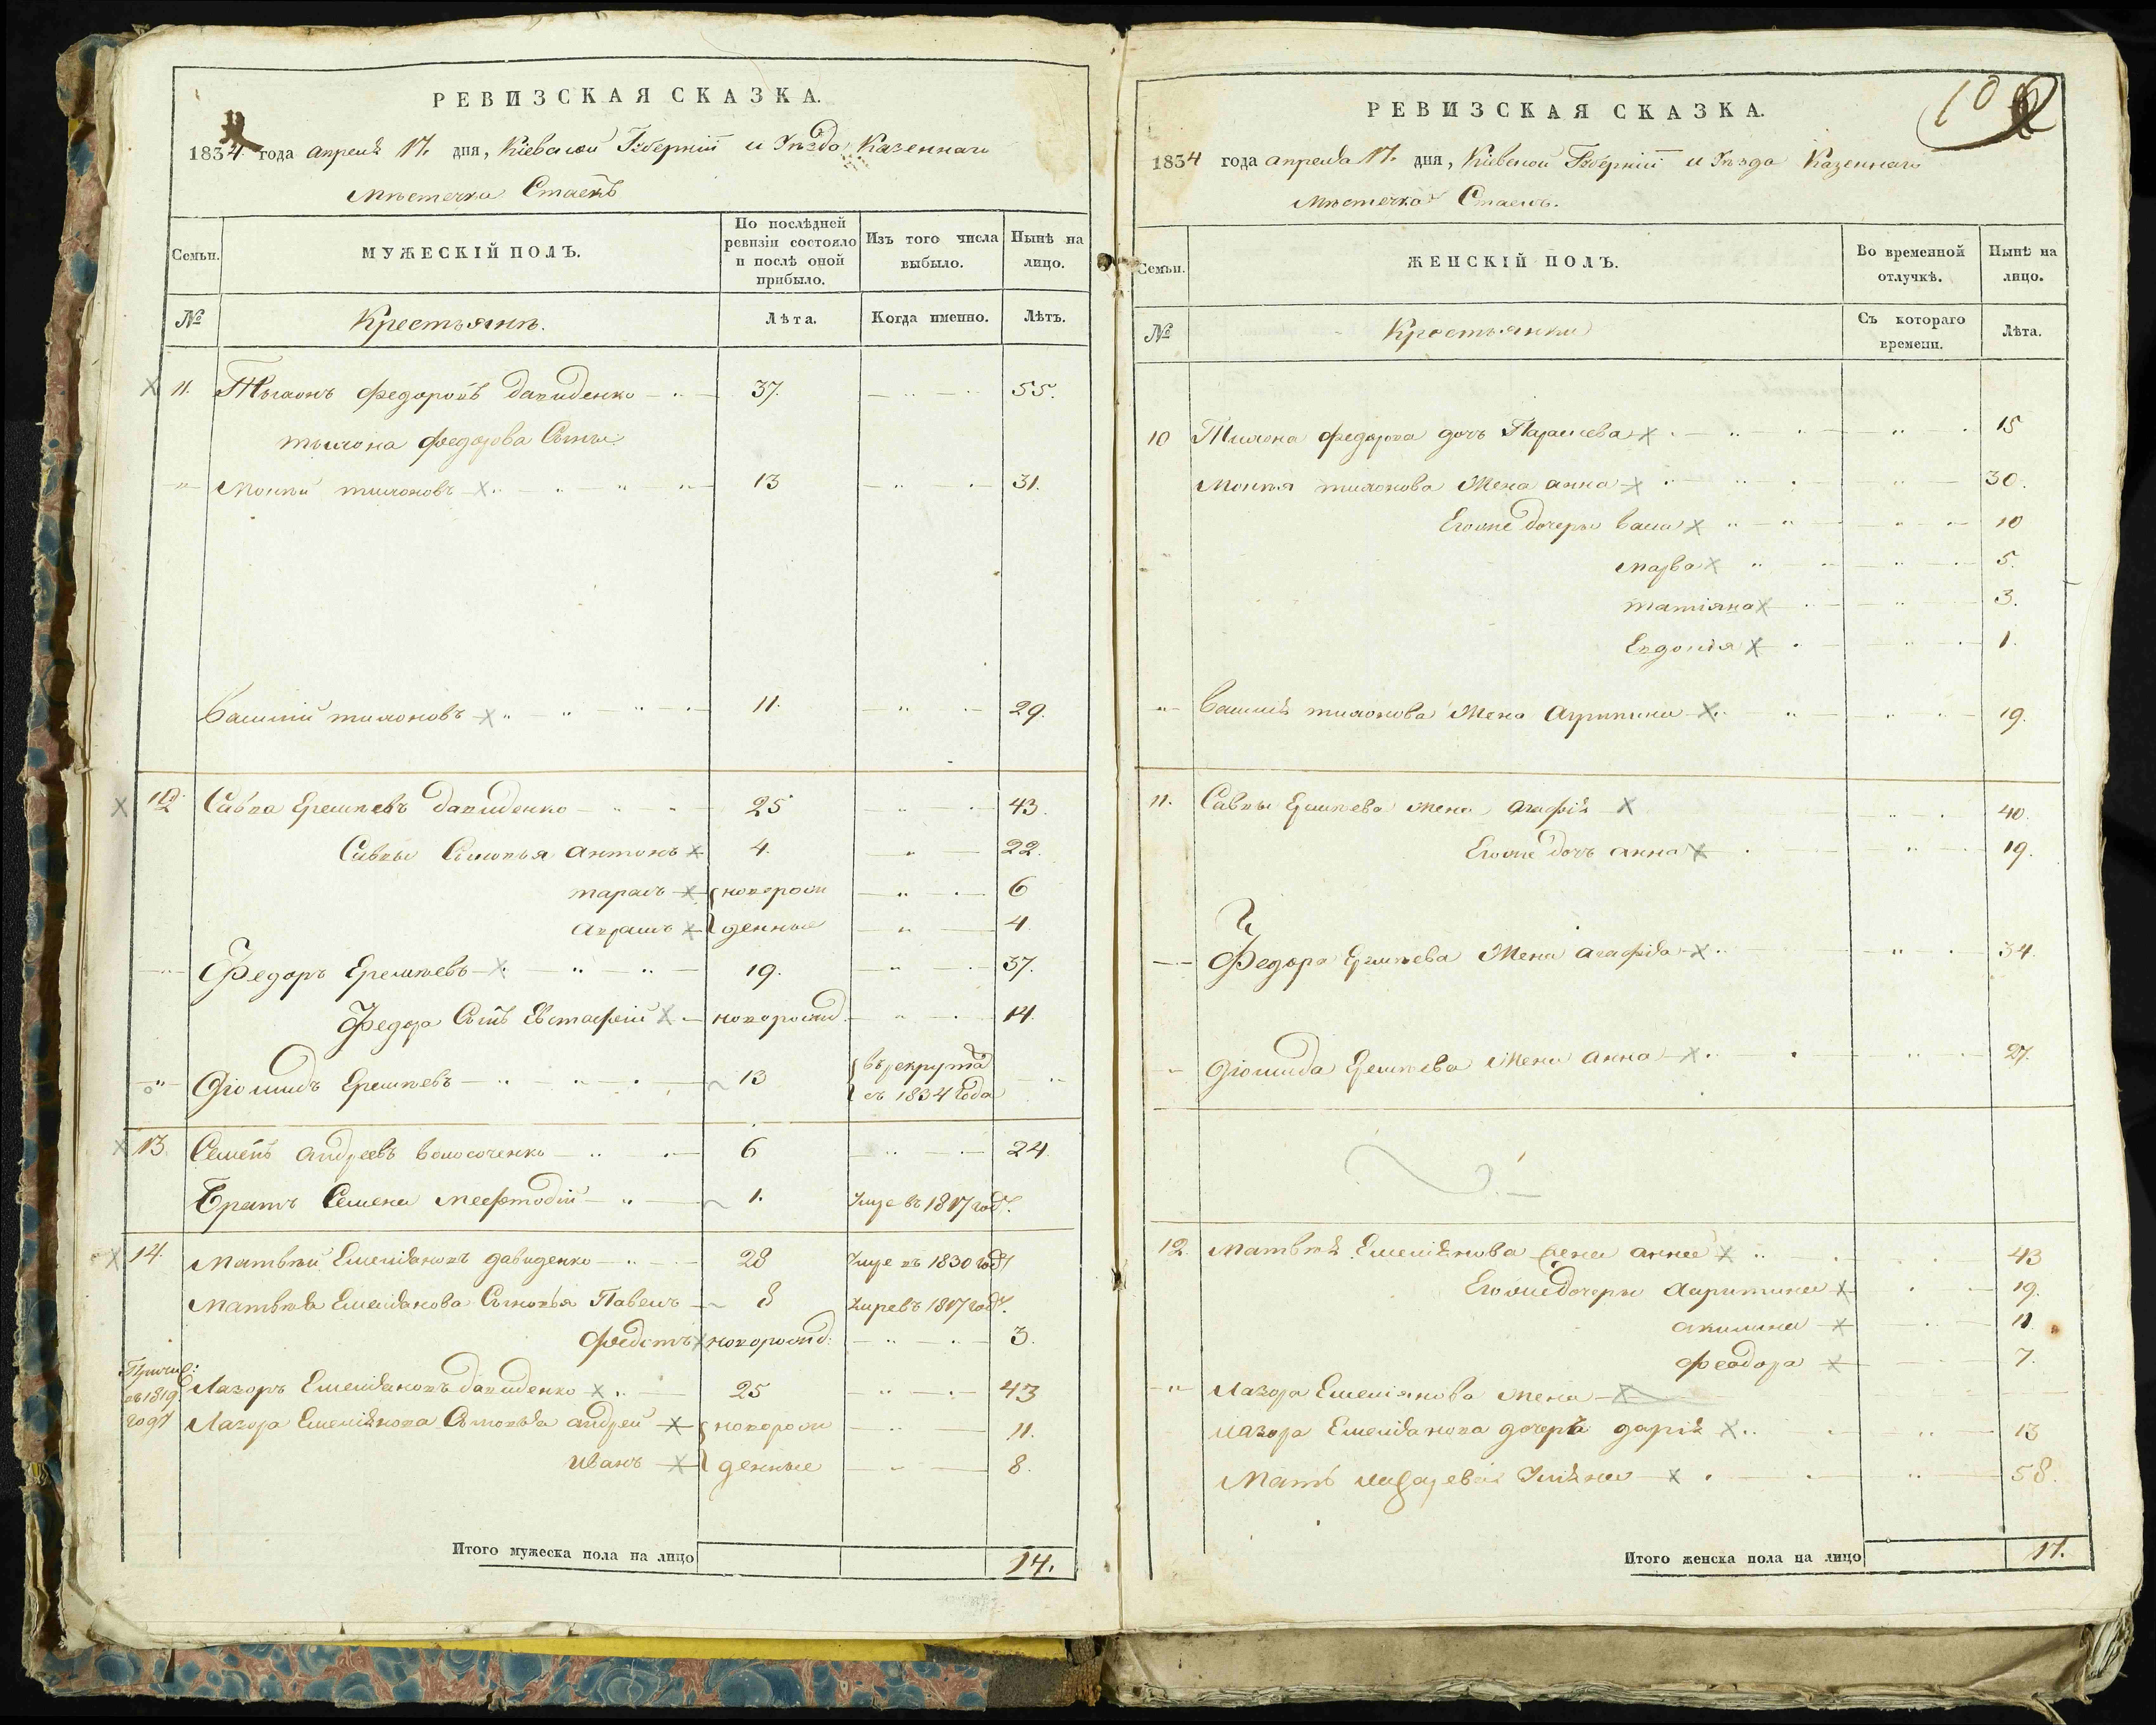 РЕВИЗСКАЯ СКАЗКА.
1834 года апреля 17. дня, Кіевской Губерніи и Уѣзда Казеннаго
Мѣстечка Стаекъ
Семьи.
МУЖЕСКІЙ ПОЛЪ.
По послѣдней ревизіи состояло и послѣ оной прибыло.
Изъ того числа выбыло.
Нынѣ на лицо.
№
Крестьянѣ.
Лѣта.
Когда именно.
Лѣтъ.
11. Тихонъ Федоровъ Давиденко 37. 55.
тихона Федорова Сыны:
Моисѣй тихоновъ 13 31.
Василий тихоновъ 11. 29.
12 Савва Еремѣевъ Давиденко 25 43.
Саввы Сыновья Антонъ 4. 22.
тарасъ новорож 6
Абрамъ денные 4
Федоръ Еремѣевъ 19. 37.
Федора Сынъ Евстафий новорожд. 14.
Діомидъ Еремѣевъ 13 въ рекрута съ 1834 года
13. Семенъ Андреевъ Волосоченко 6 24.
Братъ Семена Мефтодій 1. Умре въ 1817 году.
14. Матвѣй Емеліяновъ давиденко 28 Умре въ 1830 году
Матвѣя Емеліянова Сыновья Павелъ 8 Умре въ 1817 году.
Федотъ новорожд: 3.
Причис: въ 1819 году
Лазорь Емеліяновъ давиденко 25 43
Лазоря Емеліянова Сыновья андрей новорож 11.
Иванъ денные 8.
Итого мужеска пола на лицо 14.
10
РЕВИЗСКАЯ СКАЗКА.
1834 года апреля 17. дня, Кіевской Губерніи и Уѣзда Казеннаго
Мѣстечка Стаекъ.
Семьи.
ЖЕНСКІЙ ПОЛЪ.
Во временной отлучкѣ.
Нынѣ на лицо.
№
Крестьянки
Съ котораго времени.
Лѣта.
10 Тихона Федорова дочь Параскева 15
Моисѣя тихонова Жена анна 30.
Егоже дочеры Васа 10
Марва 5.
татіяна 3.
Евдокія 1.
Василия тихонова Жена Агрипина 19.
11. Саввы Еремѣева жена агафія 40.
Егоже дочь анна 19.
Федора Еремѣева Жена агафія 34.
Діомида Еремѣева Жена анна 27.
12. Матвѣя Емеліянова жена анна 43
Егоже дочеры Агрипина 19.
акилина 11.
Феодора 7.
Лазоря Емеліянова жена
Лазоря Емеліянова дочерь дарія 13
Мать лазарева Уліяна 58.
Итого женска пола на лицо 17.